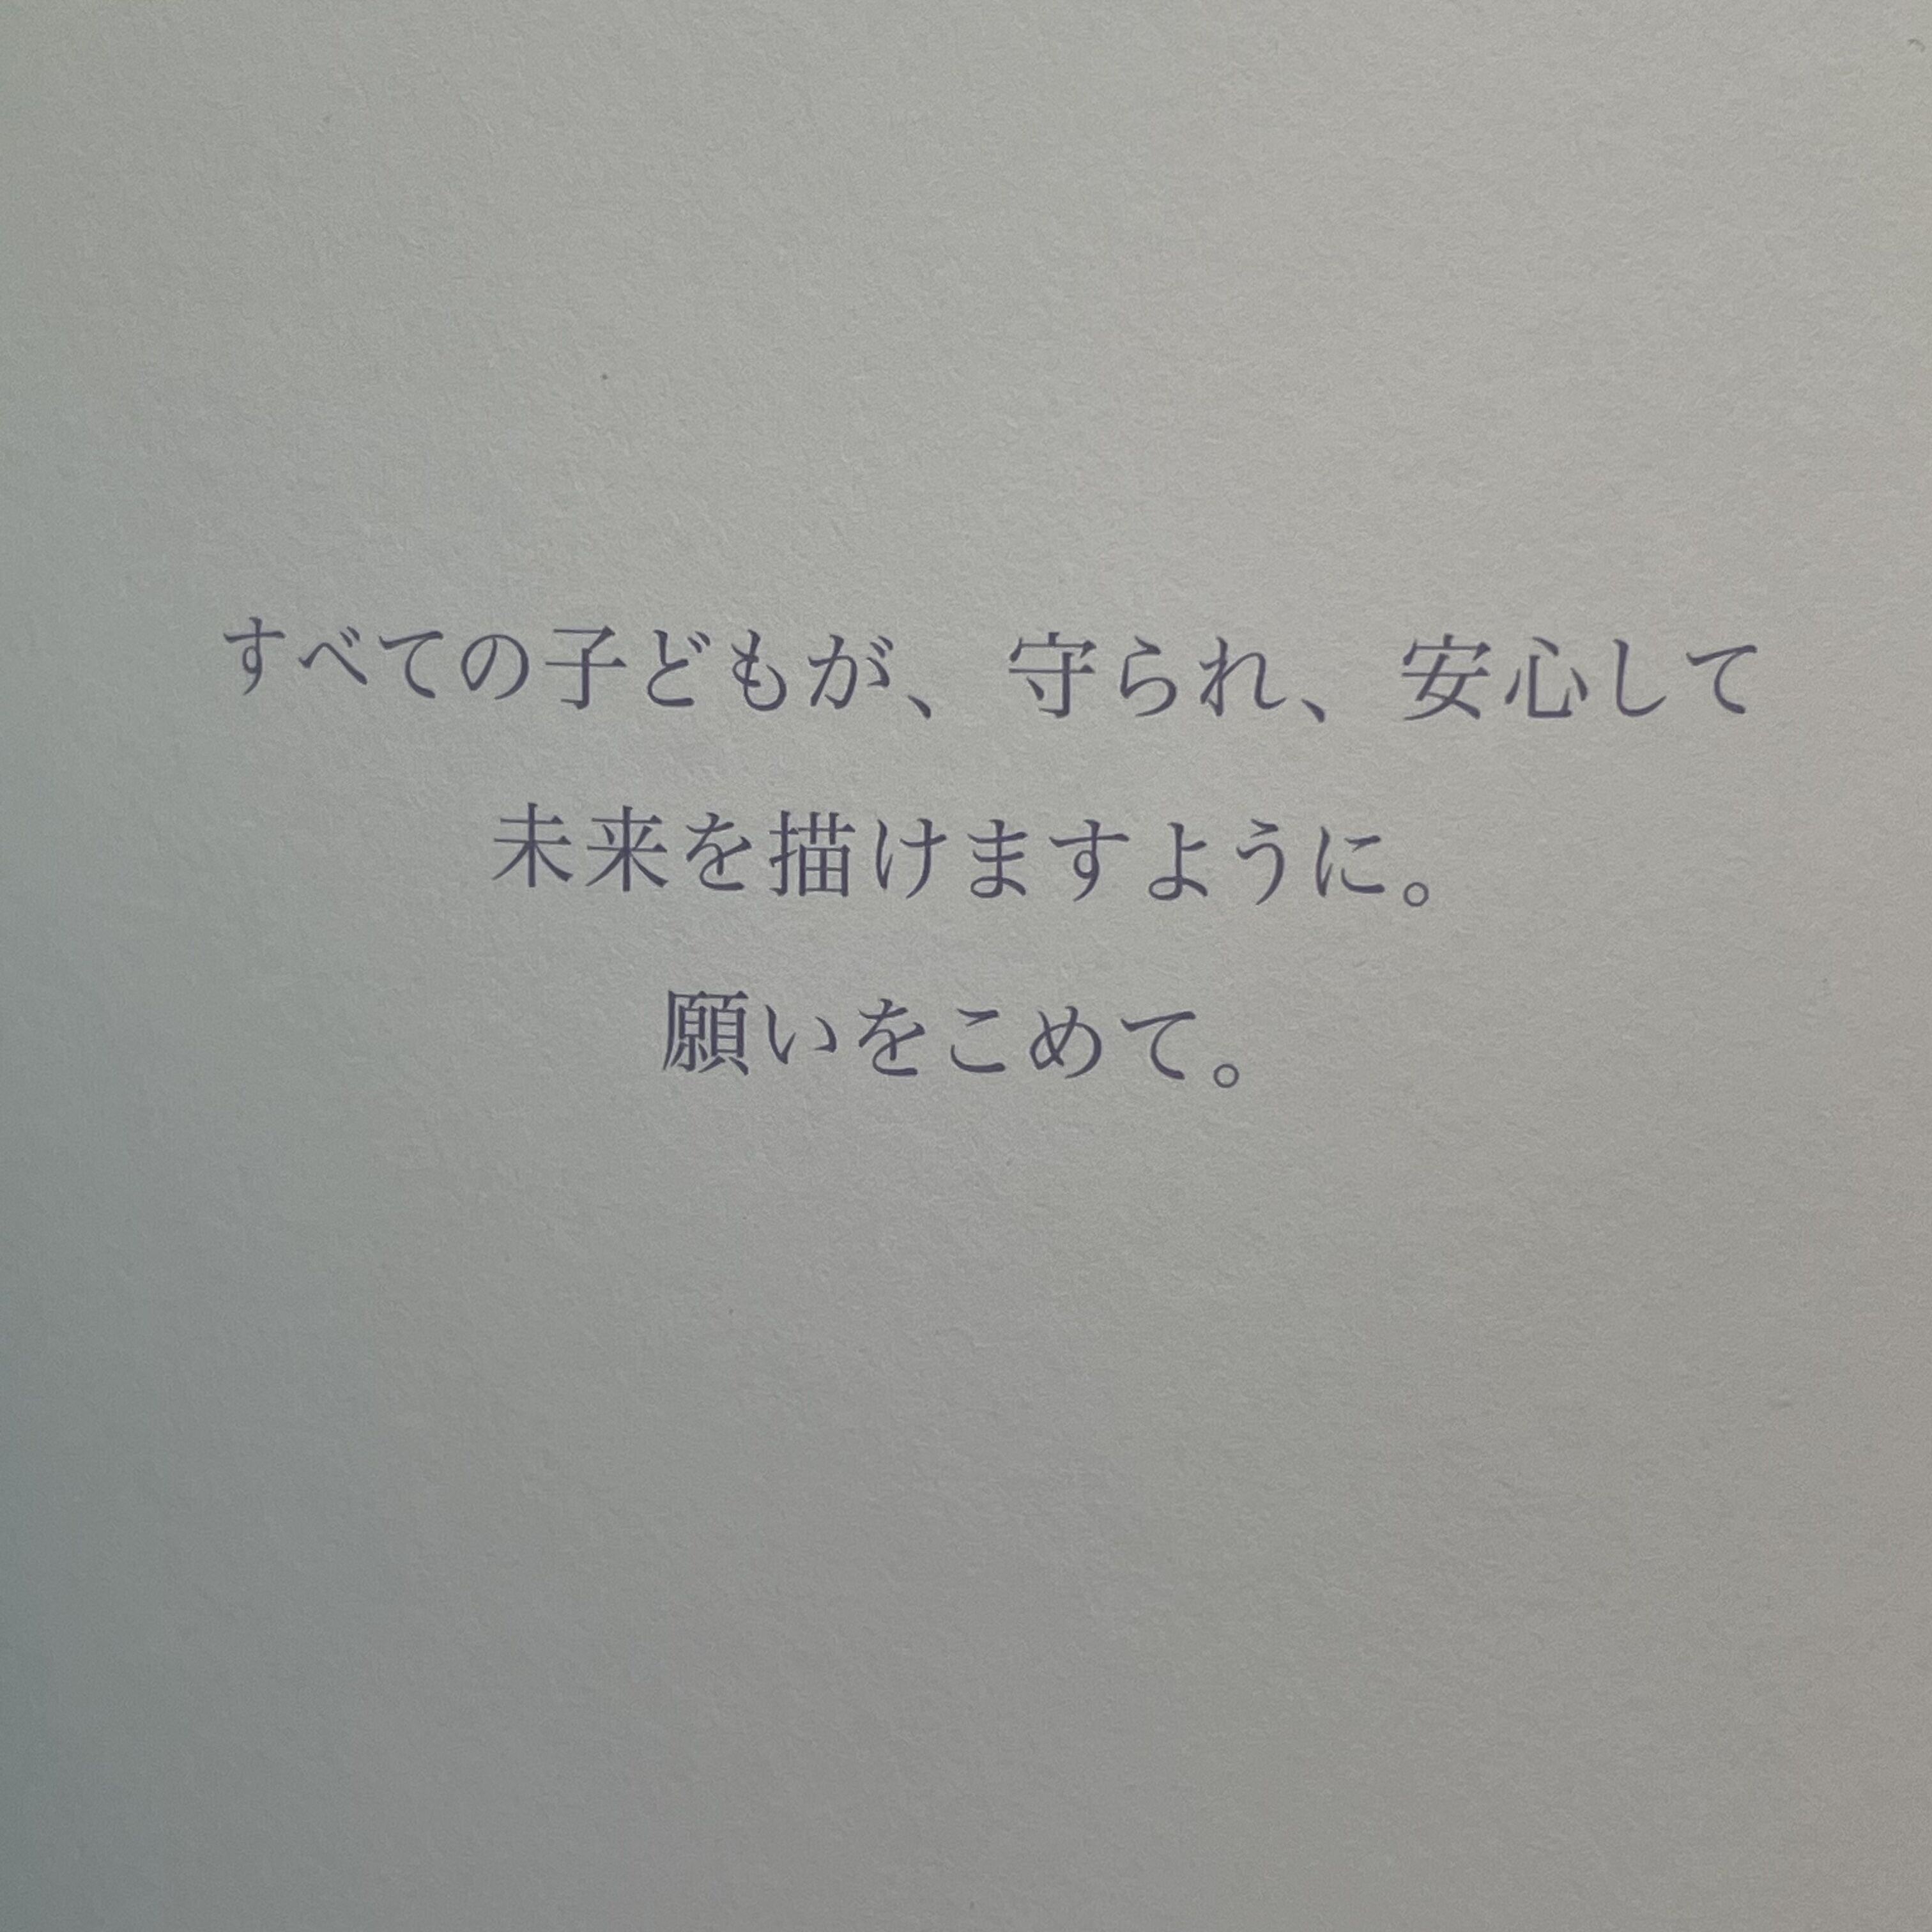 すべての子どもが、守られ、安心して
未来を描けますように。
願いをこめて。